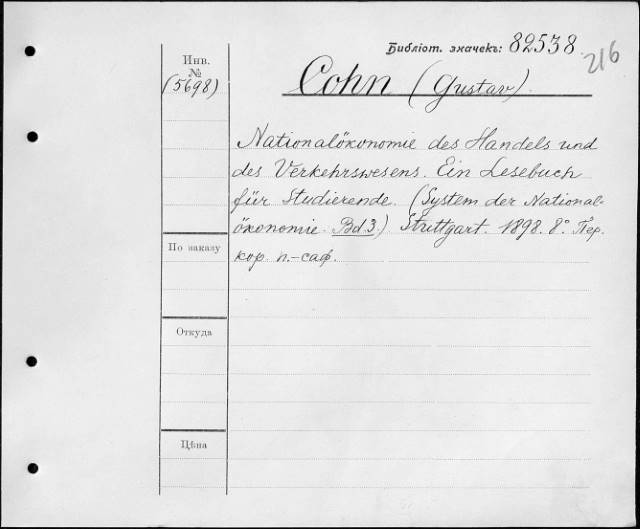 Библіот. значекъ: 82538.
216
Инв.
№
(5698)
Cohn (Gustav).
Nationalökonomie des Handels und
des Verkehrswesens. Ein Lesebuch
für Studierende. (System der National-
ökonomie. Bd. 3.) Stuttgart. 1898. 8° Пер.
кор. п.-саф.
По заказу
Откуда
Цѣна